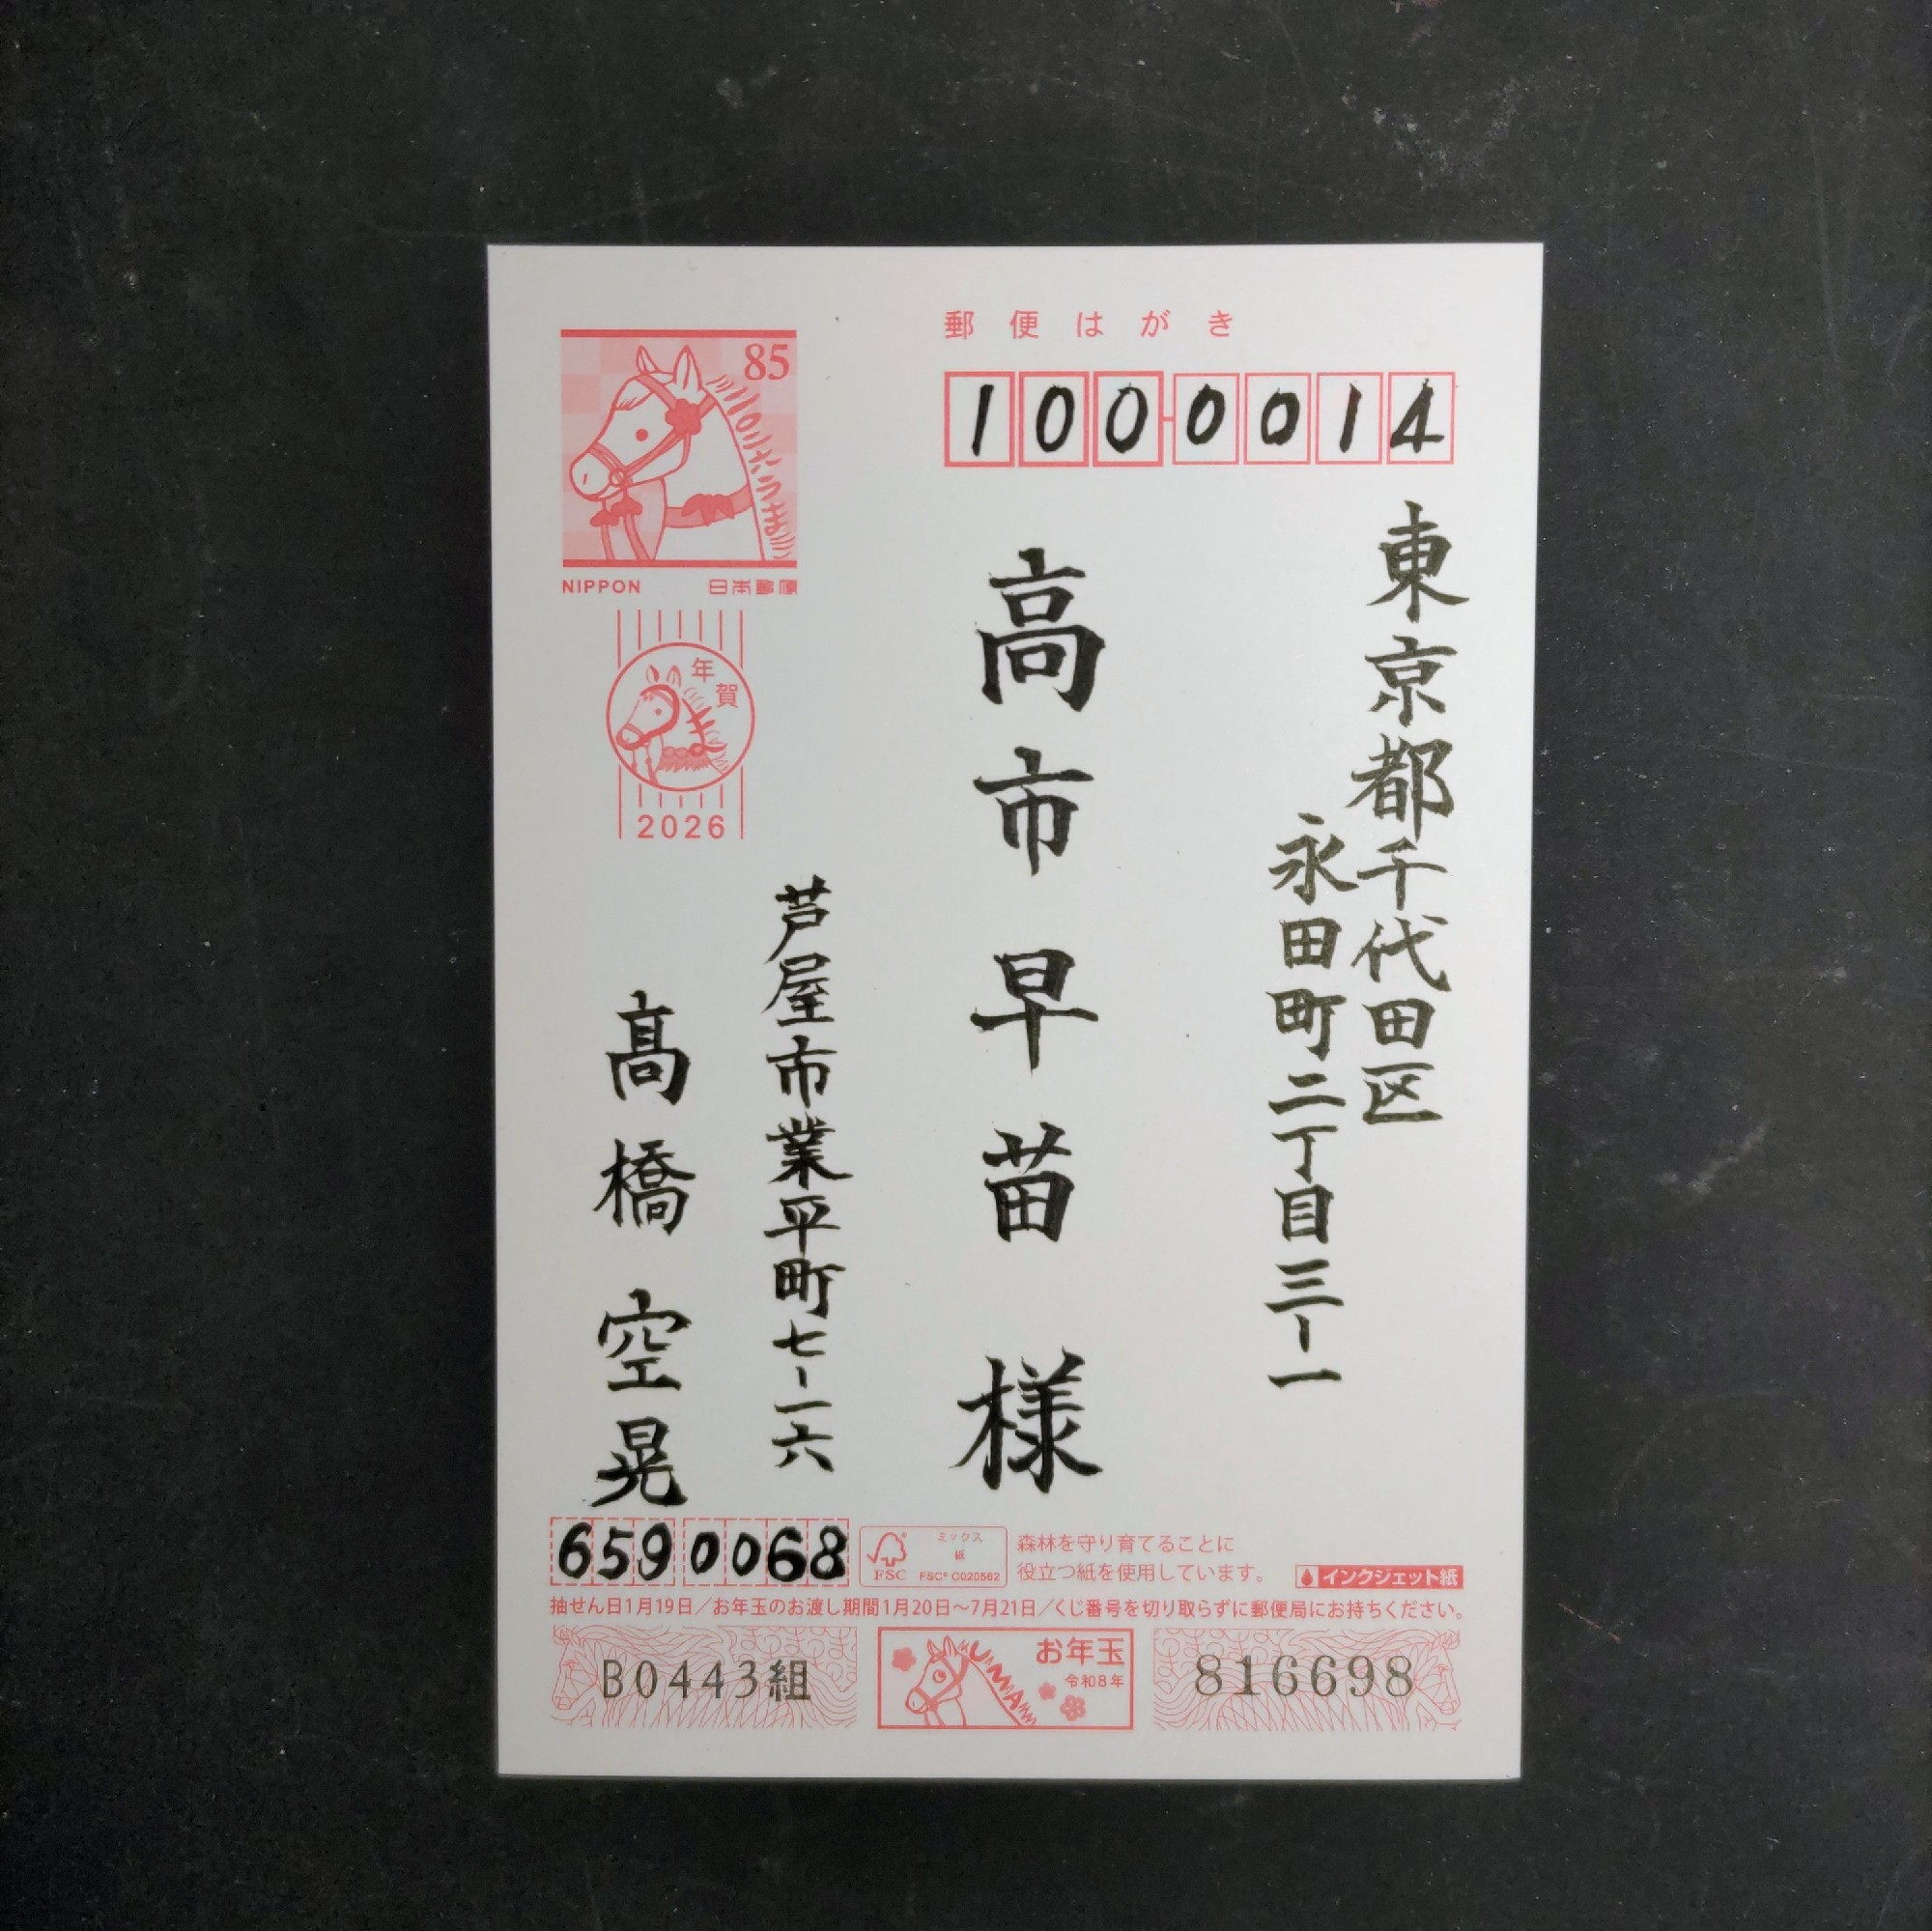 郵便はがき
1000014
東京都千代田区
永田町二丁目三-一
高市早苗様
85
二〇二六うま
NIPPON 日本郵便
年賀
うま
2026
芦屋市業平町七-一六
髙橋空晃
6590068
FSC
ミックス
紙
FSC® C020562
森林を守り育てることに
役立つ紙を使用しています。
インクジェット紙
抽せん日1月19日/お年玉のお渡し期間1月20日〜7月21日/くじ番号を切り取らずに郵便局にお持ちください。
B0443組
UMA
お年玉
令和8年
816698